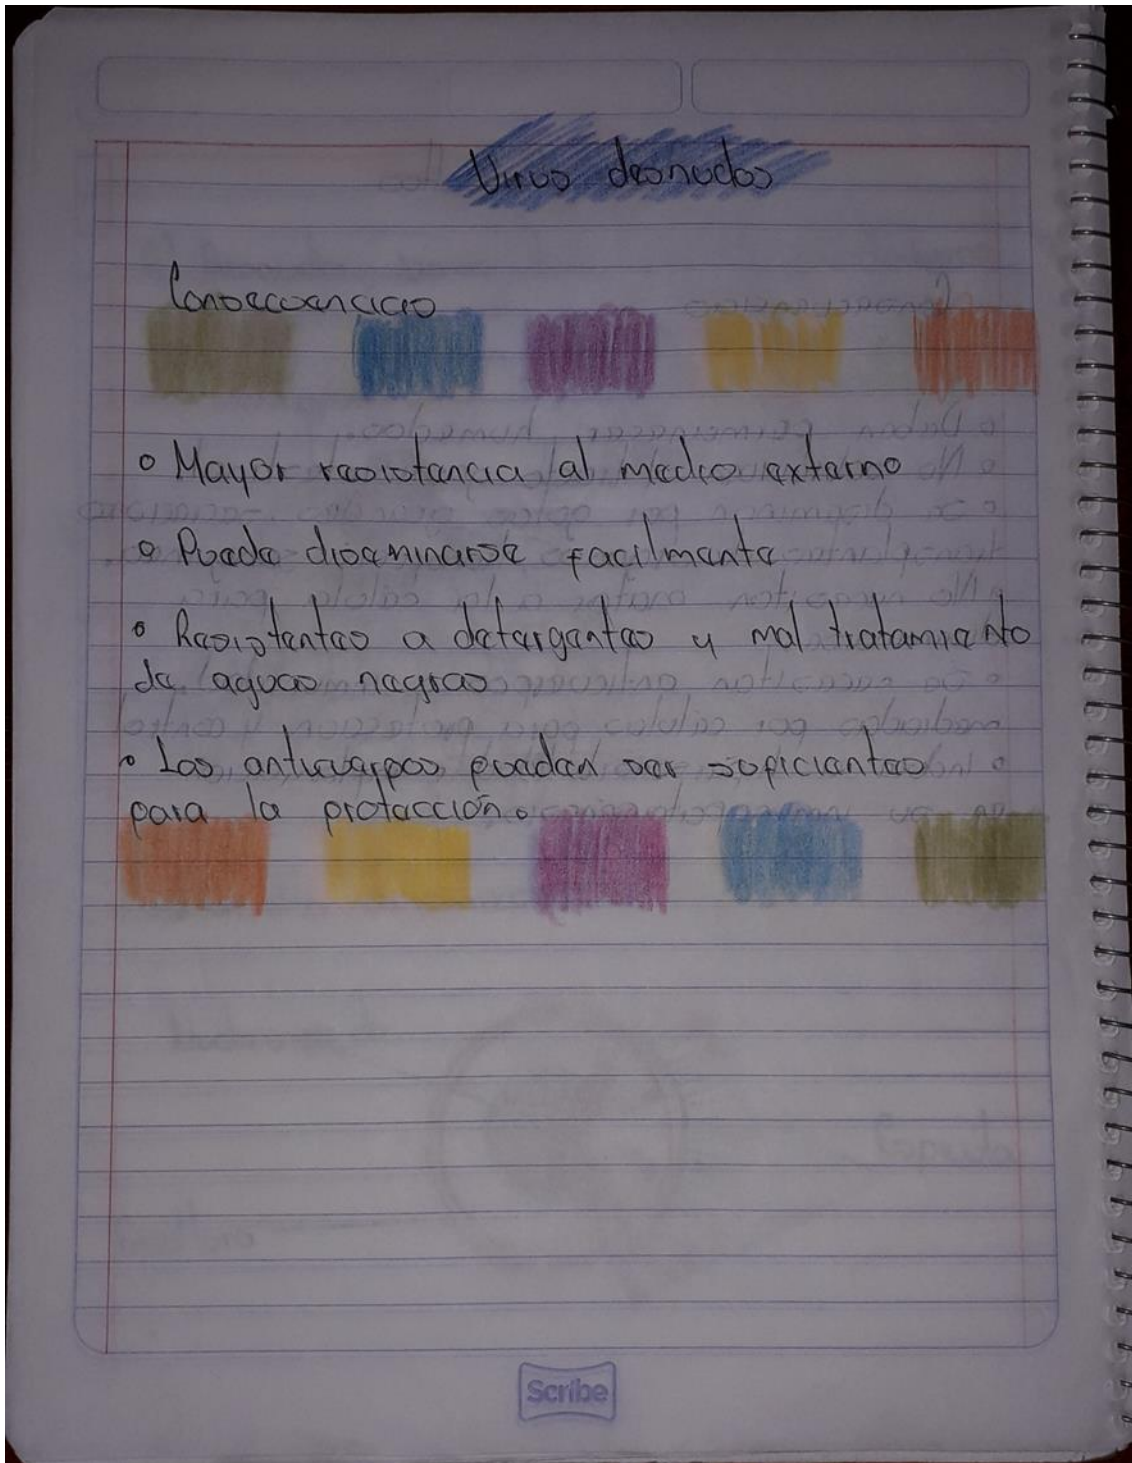 Virus desnudos
Consecuencias
° Mayor resistencia al medio externo
° Puede diseminarse facilmente
° Resistentes a detergentes y mal tratamiento
de aguas negras
° Los anticuerpos pueden ser suficientes
para la protección.
Scribe